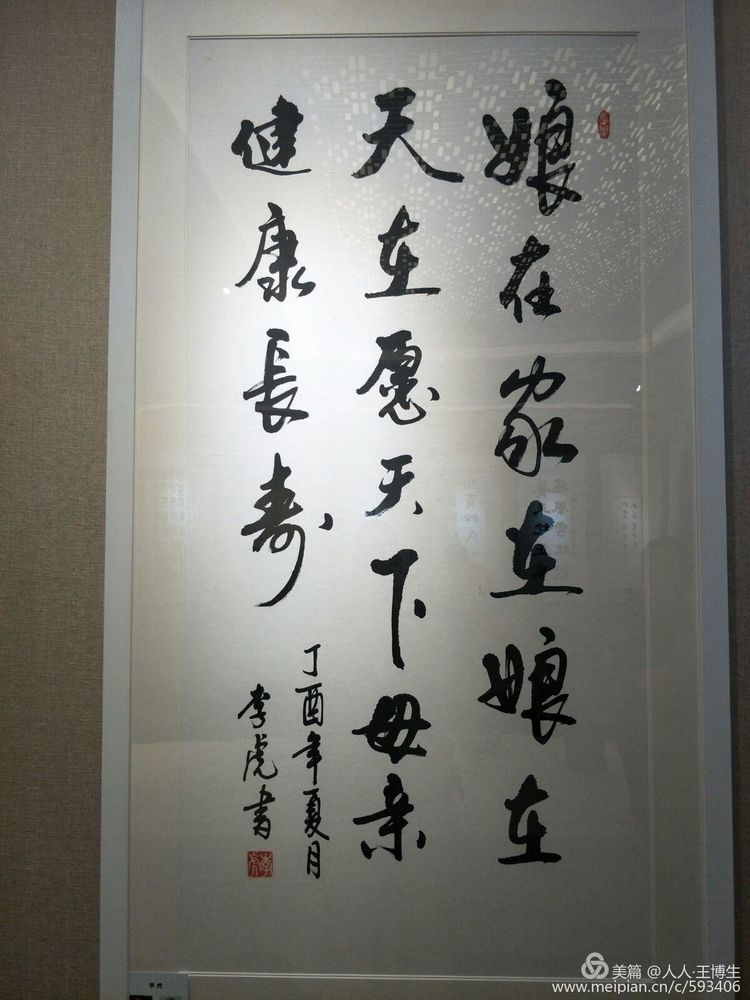 娘在家在娘在
天在愿天下母亲
健康長寿
丁酉年夏月
李虎书
李虎
美篇 @人人·王博生
www.meipian.cn/c/593406